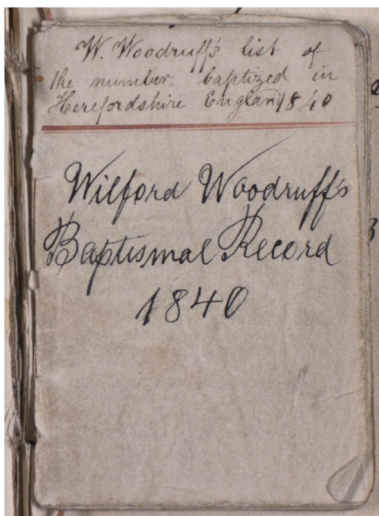 W. Woodruff's list of
the number baptized in
Herefordshire England 1840
Wilford Woodruff's
Baptismal Record
1840